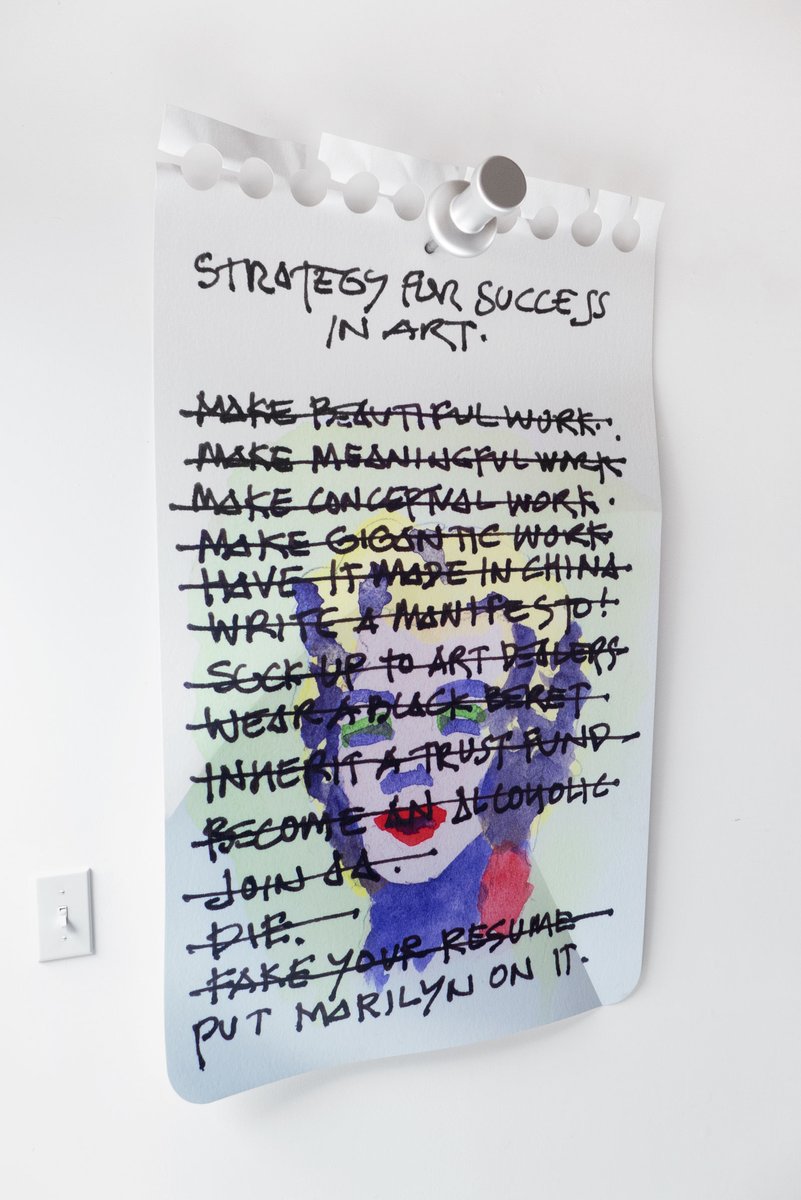 STRATEGY FOR SUCCESS
IN ART.
MAKE BEAUTIFUL WORK.
MAKE MEANINGFUL WORK
MAKE CONCEPTUAL WORK.
MAKE GIGANTIC WORK
HAVE IT MADE IN CHINA
WRITE A MANIFESTO!
SUCK UP TO ART DEALERS
WEAR A BLACK BERET
INHERIT A TRUST FUND
BECOME AN ALCOHOLIC
JOIN AA.
DIE.
FAKE YOUR RESUME
PUT MARILYN ON IT.